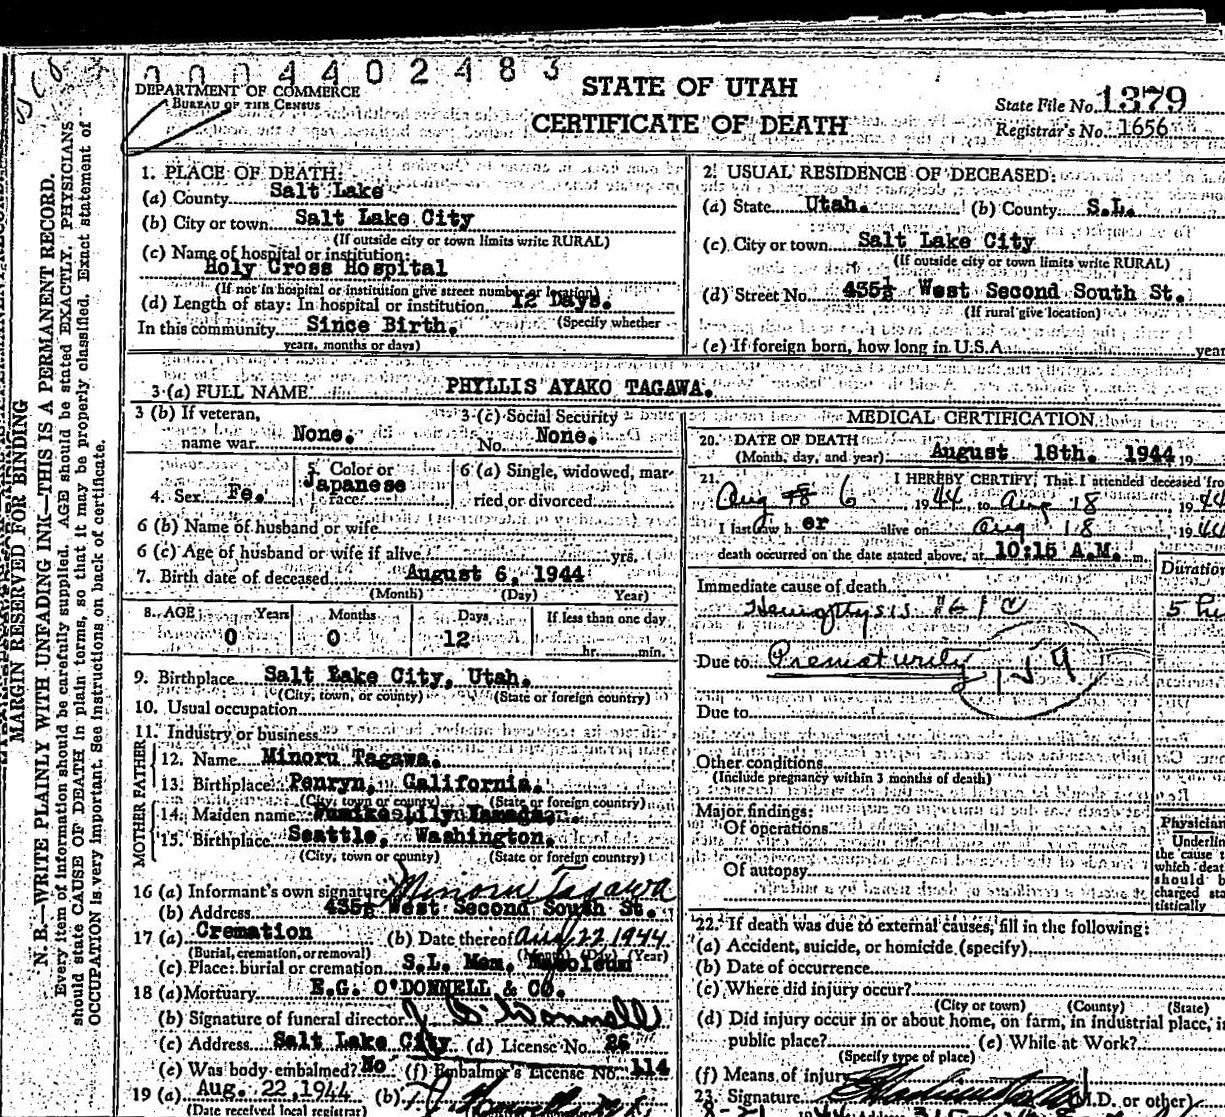 0 0 0 4 4 0 2 4 8 3
DEPARTMENT OF COMMERCE
BUREAU OF THE CENSUS
STATE OF UTAH
CERTIFICATE OF DEATH
State File No. 1379
Registrar's No. 1656
MARGIN RESERVED FOR BINDING
N. B.—WRITE PLAINLY WITH UNFADING INK—THIS IS A PERMANENT RECORD.
Every item of information should be carefully supplied. AGE should be stated EXACTLY. PHYSICIANS
should state CAUSE OF DEATH in plain terms, so that it may be properly classified. Exact statement of
OCCUPATION is very important. See instructions on back of certificate.
1. PLACE OF DEATH:
(a) County Salt Lake
(b) City or town Salt Lake City
(If outside city or town limits write RURAL)
(c) Name of hospital or institution:
Holy Cross Hospital
(If not in hospital or institution give street number or location)
(d) Length of stay: In hospital or institution 12 Days.
In this community Since Birth. (Specify whether
years, months or days)
2. USUAL RESIDENCE OF DECEASED:
(a) State Utah. (b) County S.L.
(c) City or town Salt Lake City
(If outside city or town limits write RURAL)
(d) Street No. 435½ West Second South St.
(If rural give location)
(e) If foreign born, how long in U.S.A. year
3 (a) FULL NAME PHYLLIS AYAKO TAGAWA.
3 (b) If veteran,
name war None.
3 (c) Social Security
No. None.
4. Sex Fe.
5. Color or
race Japanese
6 (a) Single, widowed, mar-
ried or divorced
6 (b) Name of husband or wife
6 (c) Age of husband or wife if alive yrs.
7. Birth date of deceased August 6, 1944
(Month) (Day) Year)
8. AGE: Years Months Days If less than one day
0 0 12 hr. min.
9. Birthplace Salt Lake City, Utah.
(City, town, or county) (State or foreign country)
10. Usual occupation
11. Industry or business
FATHER
12. Name Minoru Tagawa.
13. Birthplace Penryn, California.
(City, town or county) (State or foreign country)
MOTHER
14. Maiden name
15. Birthplace Seattle, Washington.
(City, town or county) (State or foreign country)
16 (a) Informant's own signature Minoru Tagawa
(b) Address 435½ West Second South St.
17 (a) Cremation (b) Date thereof Aug 22, 1944
(Burial, cremation, or removal) (Month) (Day) (Year)
(c) Place: burial or cremation S.L. Mem.
18 (a) Mortuary E.G. O'DONNELL & CO.
(b) Signature of funeral director J O'Donnell
(c) Address Salt Lake City (d) License No. 26
(e) Was body embalmed? No (f) Embalmer's License No. 114
19 (a) Aug. 22, 1944 (b)
(Date received local registrar)
MEDICAL CERTIFICATION
20. DATE OF DEATH
(Month, day, and year) August 18th. 1944 19
21. I HEREBY CERTIFY, That I attended deceased fro
Aug 6, 1944, to Aug 18, 1944
I last saw her alive on Aug 18, 1944
death occurred on the date stated above, at 10:15 A.M. m.
Immediate cause of death Duration
Hemoptysis
5
Due to Prematurity 159
Due to
Other conditions
(Include pregnancy within 3 months of death)
Major findings:
Of operations
Of autopsy
Physician
Underlin
the cause
which deat
should b
charged sta
tistically
22. If death was due to external causes, fill in the following:
(a) Accident, suicide, or homicide (specify)
(b) Date of occurrence
(c) Where did injury occur?
(City or town) (County) (State)
(d) Did injury occur in or about home, on farm, in industrial place, i
public place? (e) While at Work?
(Specify type of place)
(f) Means of injury
23. Signature (M.D. or other)